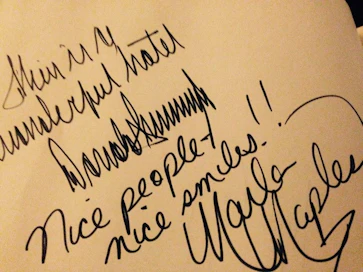 This is a
wonderful hotel
Donald Trump
Nice people-
nice smiles!!
Marla
Maples